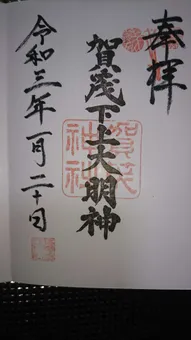 奉拝
賀茂下上大明神
賀茂
神社
令和三年一月二十日